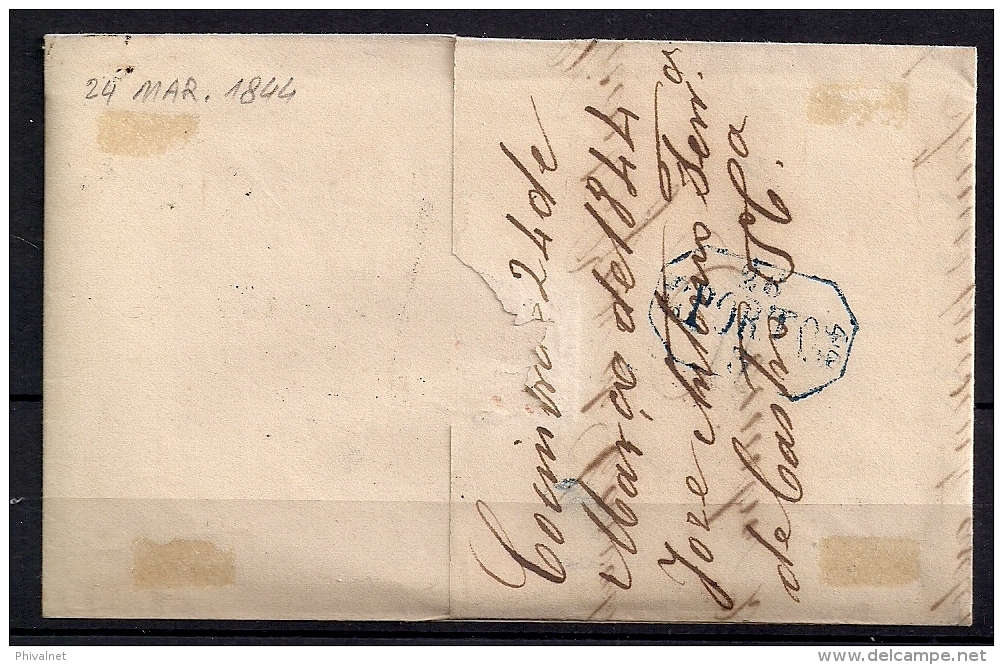 24 MAR. 1844
Coimbra 24 de
Março de 1844
Joze Antonio Ferr.a
de Castro
PORTO
44
Phivalnet
delcampe.net